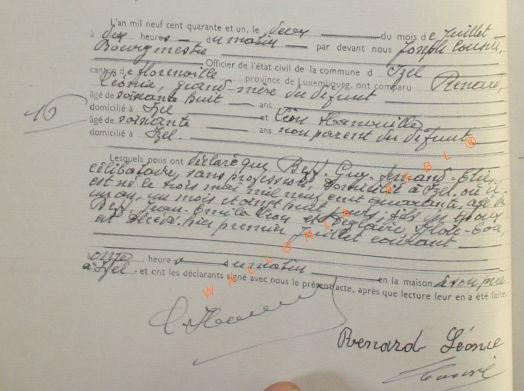 L'an mil neuf cent quarante et un, le deux du mois de Juillet
à dix heures du matin par devant nous Joseph
Bourgmestre Officier de l'état civil de la commune d' Izel
canton de Florenville province de Luxembourg, ont comparu Renard,
Léonie, grand-mère du défunt
âgé de soixante huit ans
domicilié à Izel et Léon
âgé de soixante ans non parent du défunt
domicilié à Izel.
16
Lesquels nous ont déclaré que Guy
célibataire, sans profession, domicilié à Izel où il
est né le trois mai mil neuf cent quarante, âgé de
un an, un mois et vingt huit jours, fils des époux
Jean Emile Léon et
est décédé hier premier Juillet courant
à onze heures du matin en la maison de son père
à Izel, et ont les déclarants signé avec nous le présent acte, après que lecture leur en a été faite.
Renard Léonie